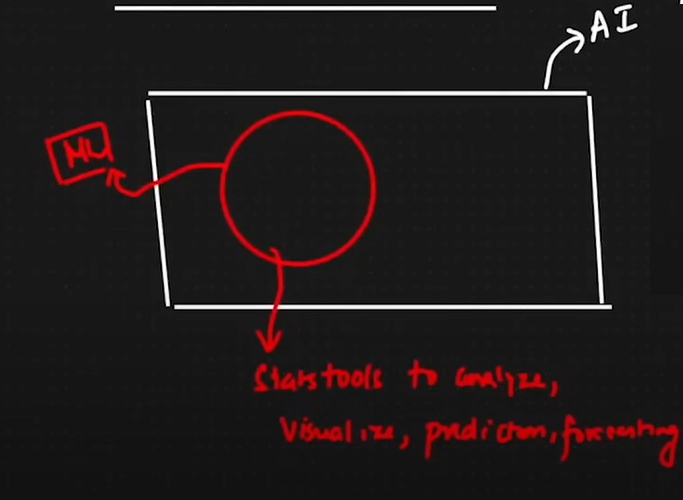 AI
ML
Stats tools to analyze,
Visualize, prediction, forecasting